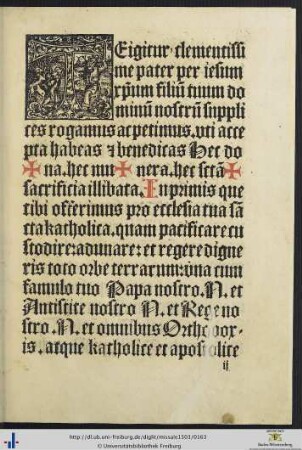 TEigitur clementissi
me pater per iesum
xp̄um filiū tuum do
minū nostrū suppli
ces rogamus ac petimus. vti acce
pta habeas ⁊ benedicas Hec do
✠ na. hec mu ✠ nera. hec sctā ✠
sacrificia illibata. Inprimis que
tibi offerimus pro ecclesia tua sā
cta katholica. quam pacificare cu
stodire: adunare: et regere digne
ris toto orbe terrarum: vna cum
famulo tuo Papa nostro. N. et
Antistite nostro N. et Rege no
stro. N. et omnibus Orthodox-
is. atque katholice et apostolice
ij
http://dl.ub.uni-freiburg.de/diglit/missale1501/0163
© Universitätsbibliothek Freiburg